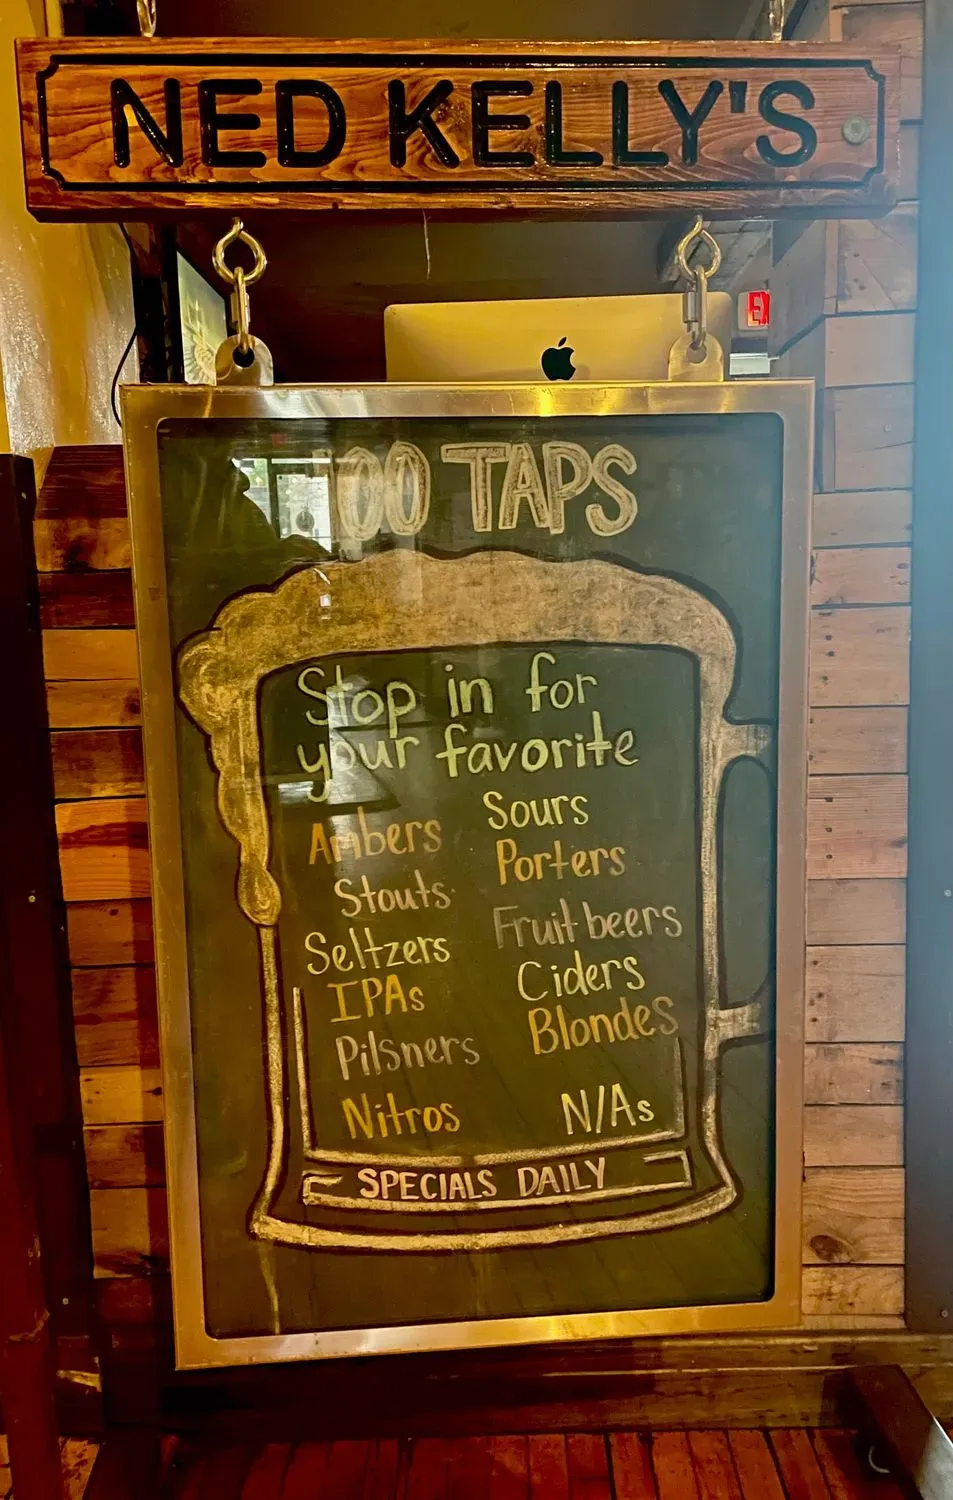 NED KELLY'S
EX
100 TAPS
Stop in for
your favorite
Ambers
Stouts
Seltzers
IPAs
Pilsners
Nitros
Sours
Porters
Fruit beers
Ciders
Blondes
N/As
SPECIALS DAILY